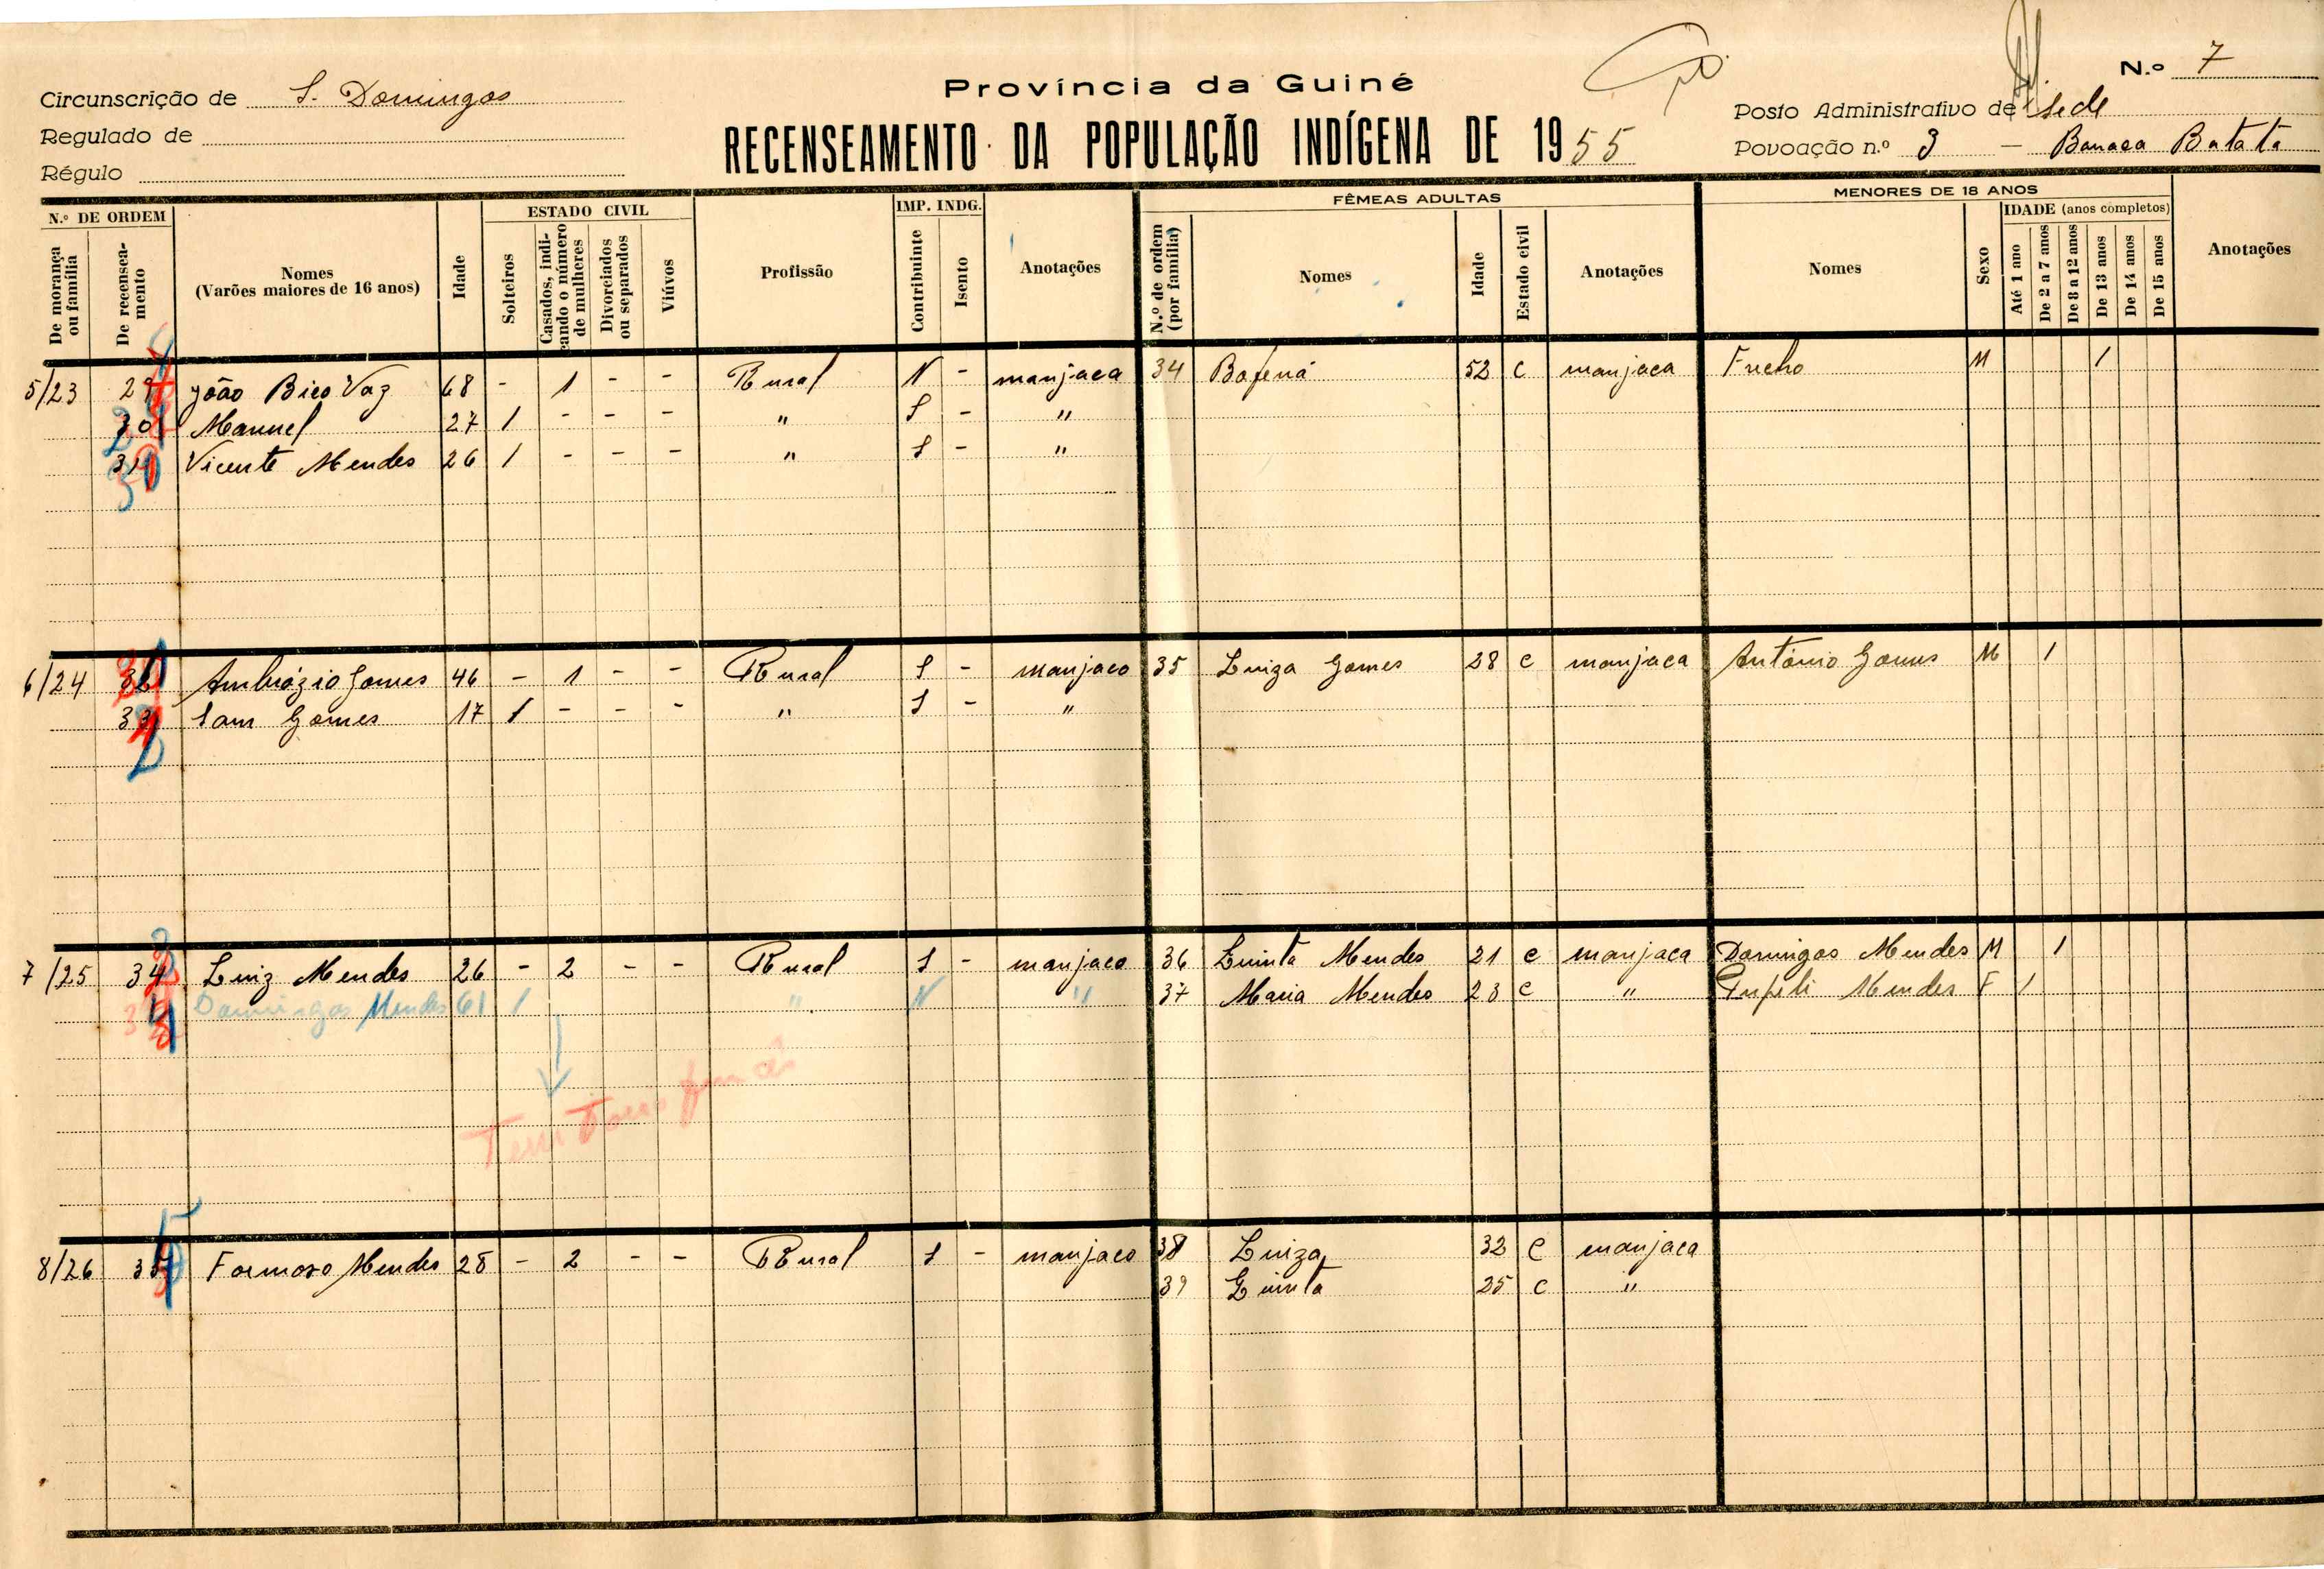 Província da Guiné
N.º 7
Circunscrição de S. Domingos
Posto Administrativo de Sede
Regulado de
RECENSEAMENTO DA POPULAÇÃO INDÍGENA DE 1955
Povoação n.º 3 — Banaca Batata
Régulo
N.º DE ORDEM
De morança ou família
De recenseamento
Nomes
(Varões maiores de 16 anos)
Idade
ESTADO CIVIL
Solteiros
Casados, indicando o número de mulheres
Divorciados ou separados
Viúvos
Profissão
IMP. INDG.
Contribuinte
Isento
Anotações
FÊMEAS ADULTAS
N.º de ordem (por família)
Nomes
Idade
Estado civil
Anotações
MENORES DE 18 ANOS
Nomes
Sexo
IDADE (anos completos)
Até 1 ano
De 2 a 7 anos
De 8 a 12 anos
De 13 anos
De 14 anos
De 15 anos
Anotações
5/23 29 João Bico Vaz 68 - 1 - - Rural N - manjaca 34 Bafená 52 C manjaca Fucho M 1
30 Manuel 27 1 - - - " S - "
31 Vicente Mendes 26 1 - - - " S - "
6/24 Ambrózio Gomes 46 - 1 - - Rural S - manjaco 35 Luiza Gomes 28 C manjaca António Gomes M 1
33 Sam Gomes 17 1 - - - " S - "
7/25 34 Luiz Mendes 26 - 2 - - Rural S - manjaco 36 Quinta Mendes 21 C manjaca Domingos Mendes M 1
Domingos Mendes 61 1 " N " 37 Maria Mendes 23 C " Mendes F 1
Tem
8/26 35 Formoso Mendes 28 - 2 - - Rural S - manjaco 38 Luiza 32 C manjaca
39 Quinta 25 C "